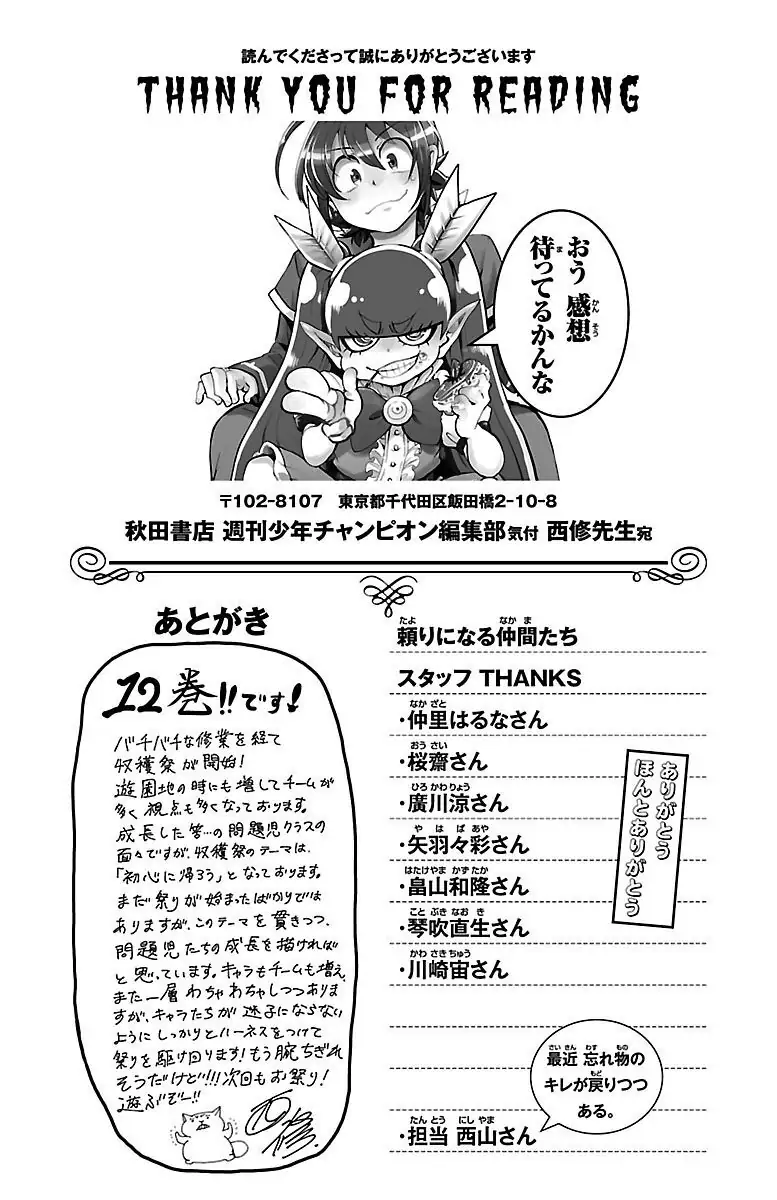 読んでくださって誠にありがとうございます
THANK YOU FOR READING
おう 感想
待ってるかんな
〒102-8107 東京都千代田区飯田橋2-10-8
秋田書店 週刊少年チャンピオン編集部気付 西修先生宛
あとがき
12巻!!です!
バチバチな修業を経て
収穫祭が開始!
遊園地の時にも増してチームが
多く視点も多くなっております。
成長した筈…の問題児クラスの
面々ですが、収穫祭のテーマは、
「初心に帰ろう」となっております。
まだ祭りが始まったばかりでは
ありますが、このテーマを貫きつつ、
問題児たちの成長を描ければ
と思っています。キャラもチームも増え、
また一層わちゃわちゃしつつありま
すが、キャラたちが迷子にならない
ようにしっかりとハーネスをつけて
祭りを駆け回ります!もう腕ちぎれ
そうだけど!!!次回もお祭り!
遊ぶぞー!!
西修
頼りになる仲間たち
スタッフ THANKS
・仲里はるなさん
・桜齋さん
・廣川涼さん
・矢羽々彩さん
・畠山和隆さん
・琴吹直生さん
・川崎宙さん
ありがとう
ほんとありがとう
最近 忘れ物の
キレが戻りつつ
ある。
・担当 西山さん